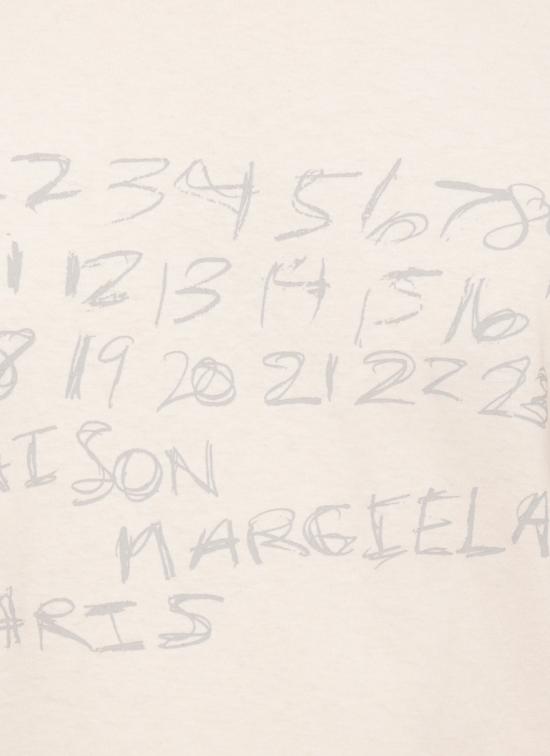 2 3 4 5 6 7 8
11 12 13 14 15 16
18 19 20 21 22 23
AISON
MARGIELA
ARIS